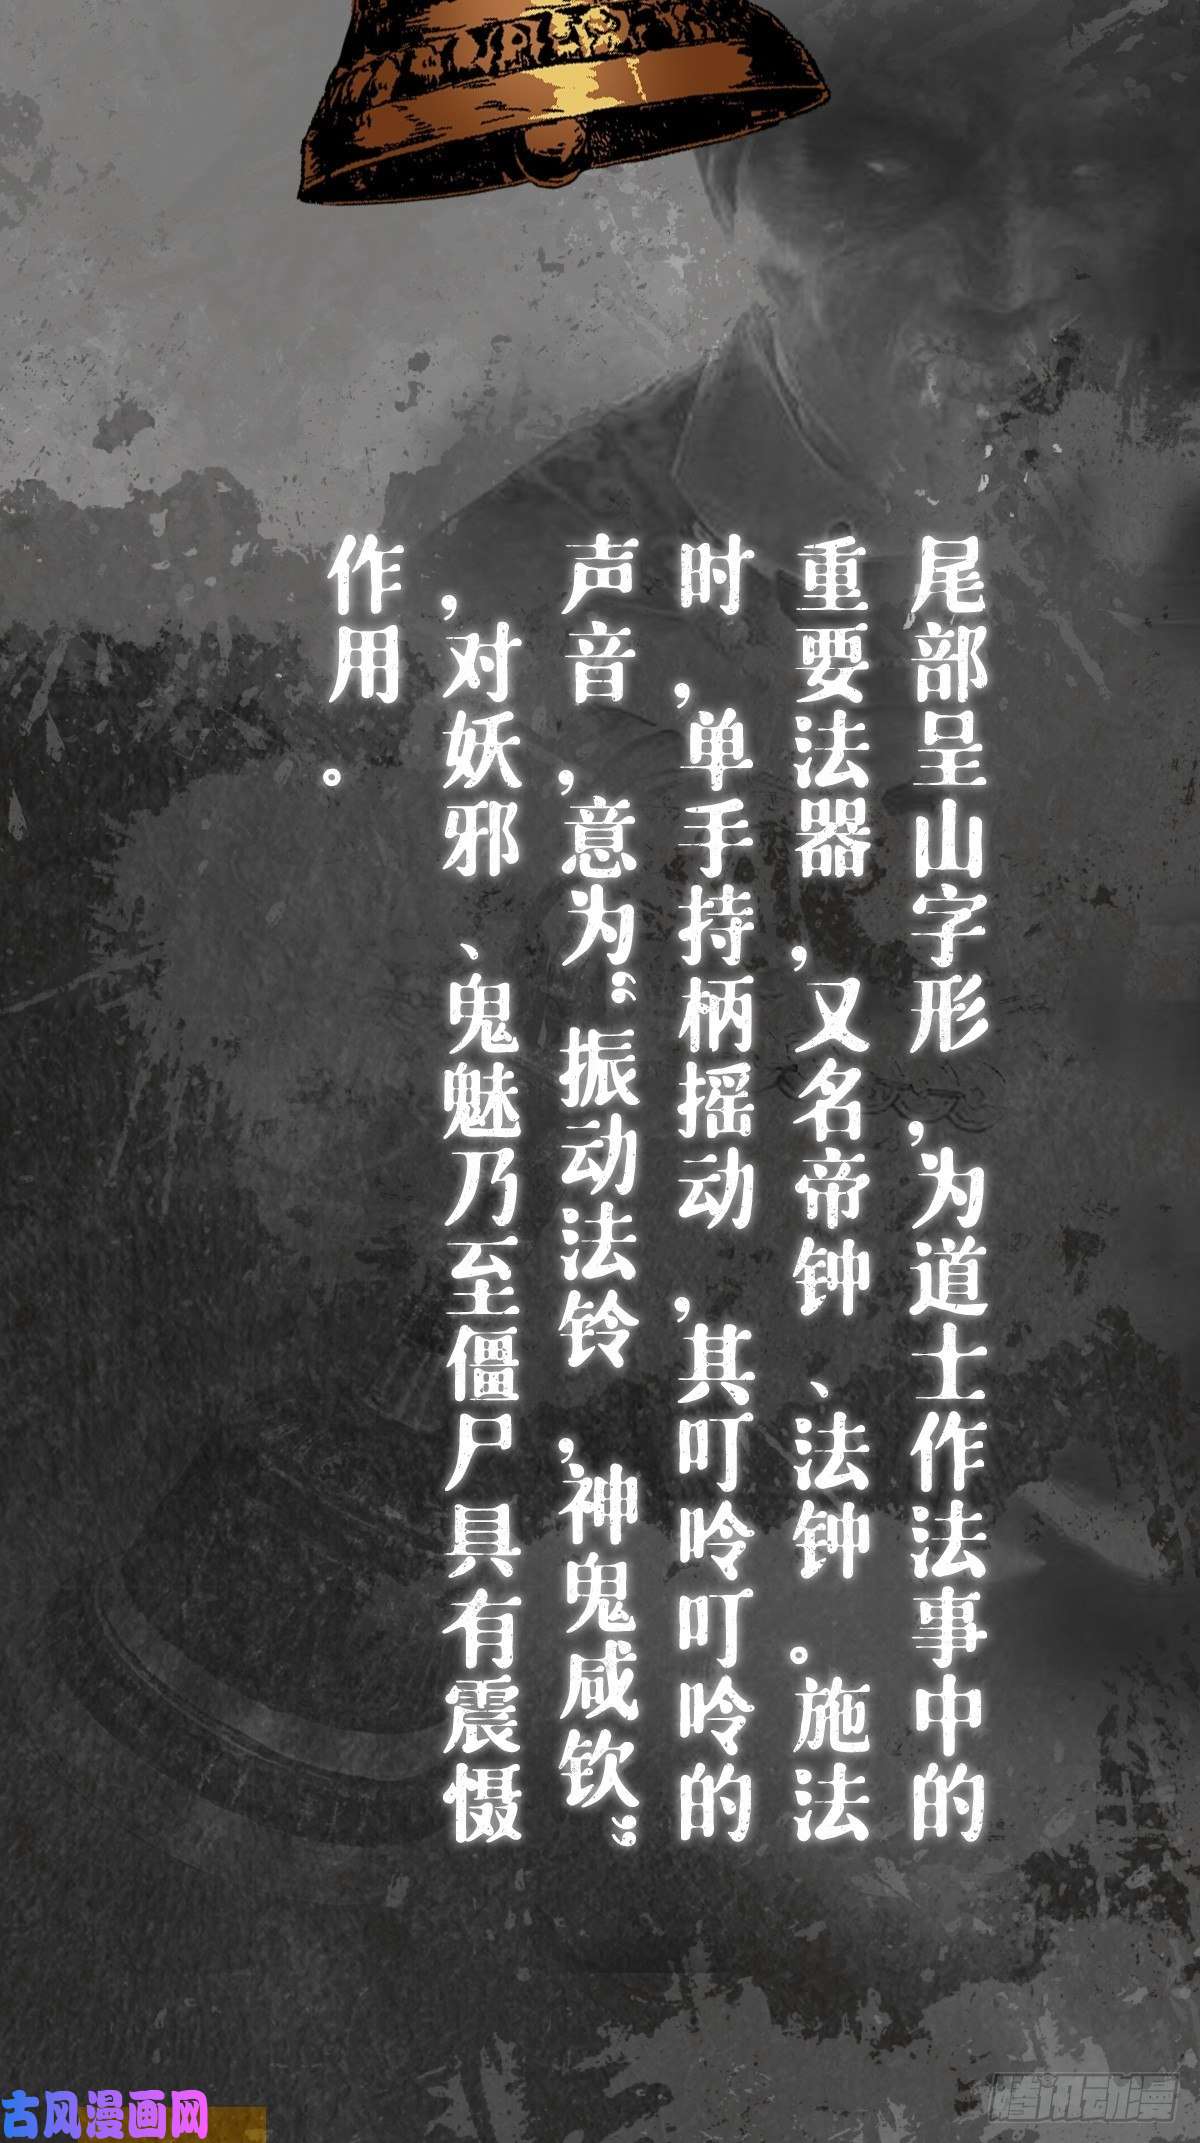 尾部呈山字形,为道士作法事中的
重要法器,又名帝钟、法钟。施法
时,单手持柄摇动,其叮呤叮呤的
声音,意为“振动法铃,神鬼咸钦”
,对妖邪、鬼魅乃至僵尸具有震慑
作用。
古风漫画网
腾讯动漫